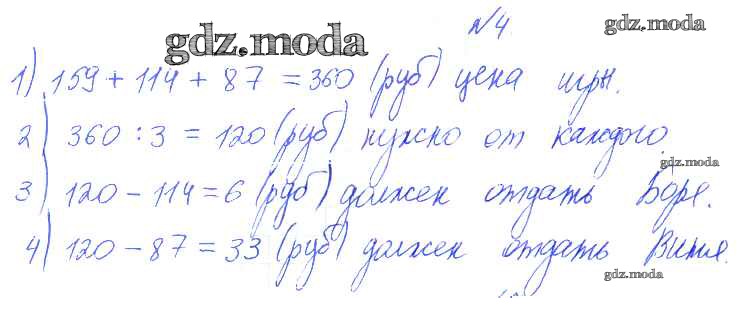 №4
gdz.moda
gdz.moda
1) 159 + 114 + 87 = 360 (руб) цена игры.
2) 360 : 3 = 120 (руб) нужно от каждого.
gdz.moda
3) 120 - 114 = 6 (руб) должен отдать Боре.
4) 120 - 87 = 33 (руб) должен отдать Вите.
gdz.moda